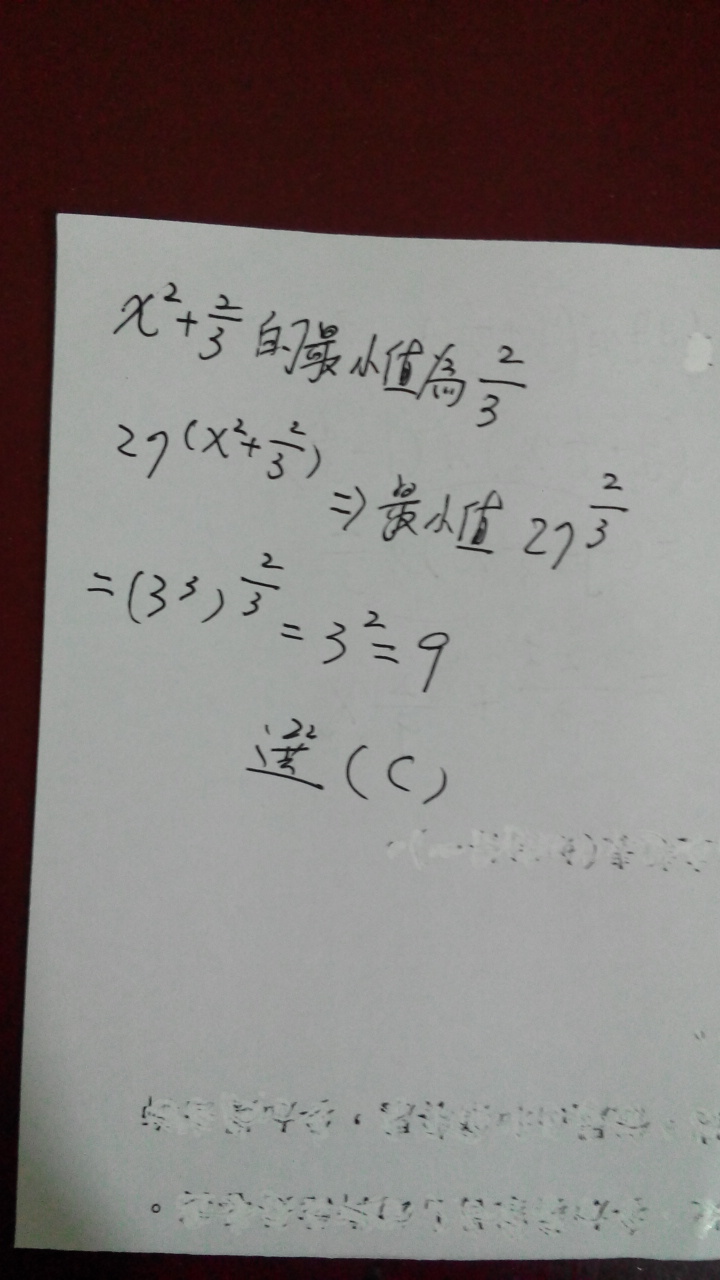 x²+2/3 的最小值為 2/3
27^(x²+2/3) ⇒ 最小值 27^(2/3)
=(3³)^(2/3) = 3² = 9
選 (C)